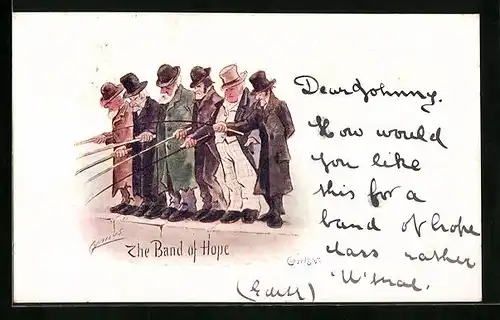 Dear Johnny.
How would
you like
this for a
band of hope
class rather
'U'
(Edith)
The Band of Hope